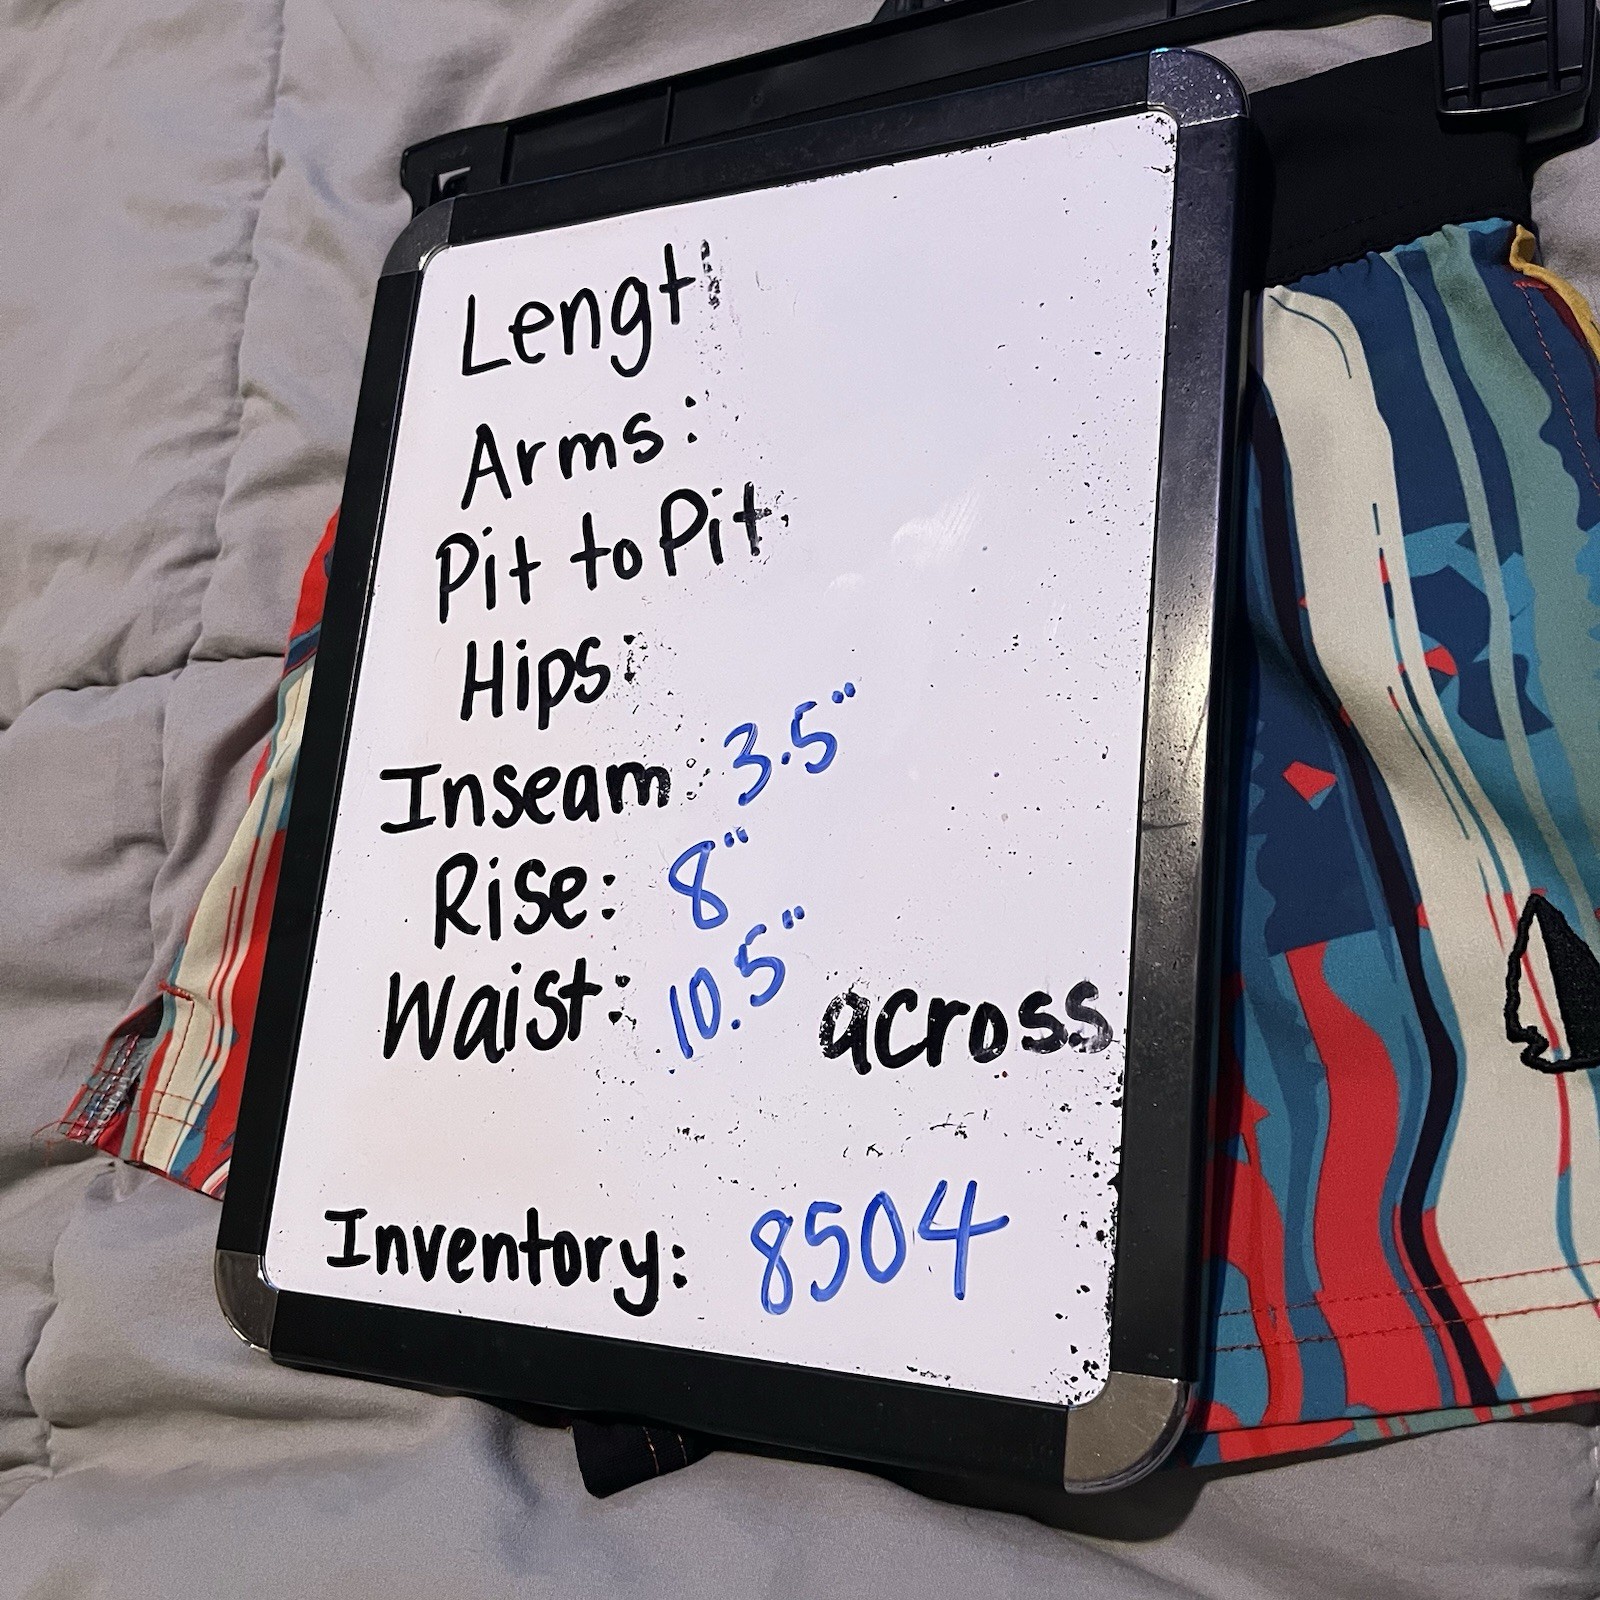 Lengt
Arms:
Pit to Pit
Hips:
Inseam: 3.5"
Rise: 8"
Waist: 10.5" across
Inventory: 8504